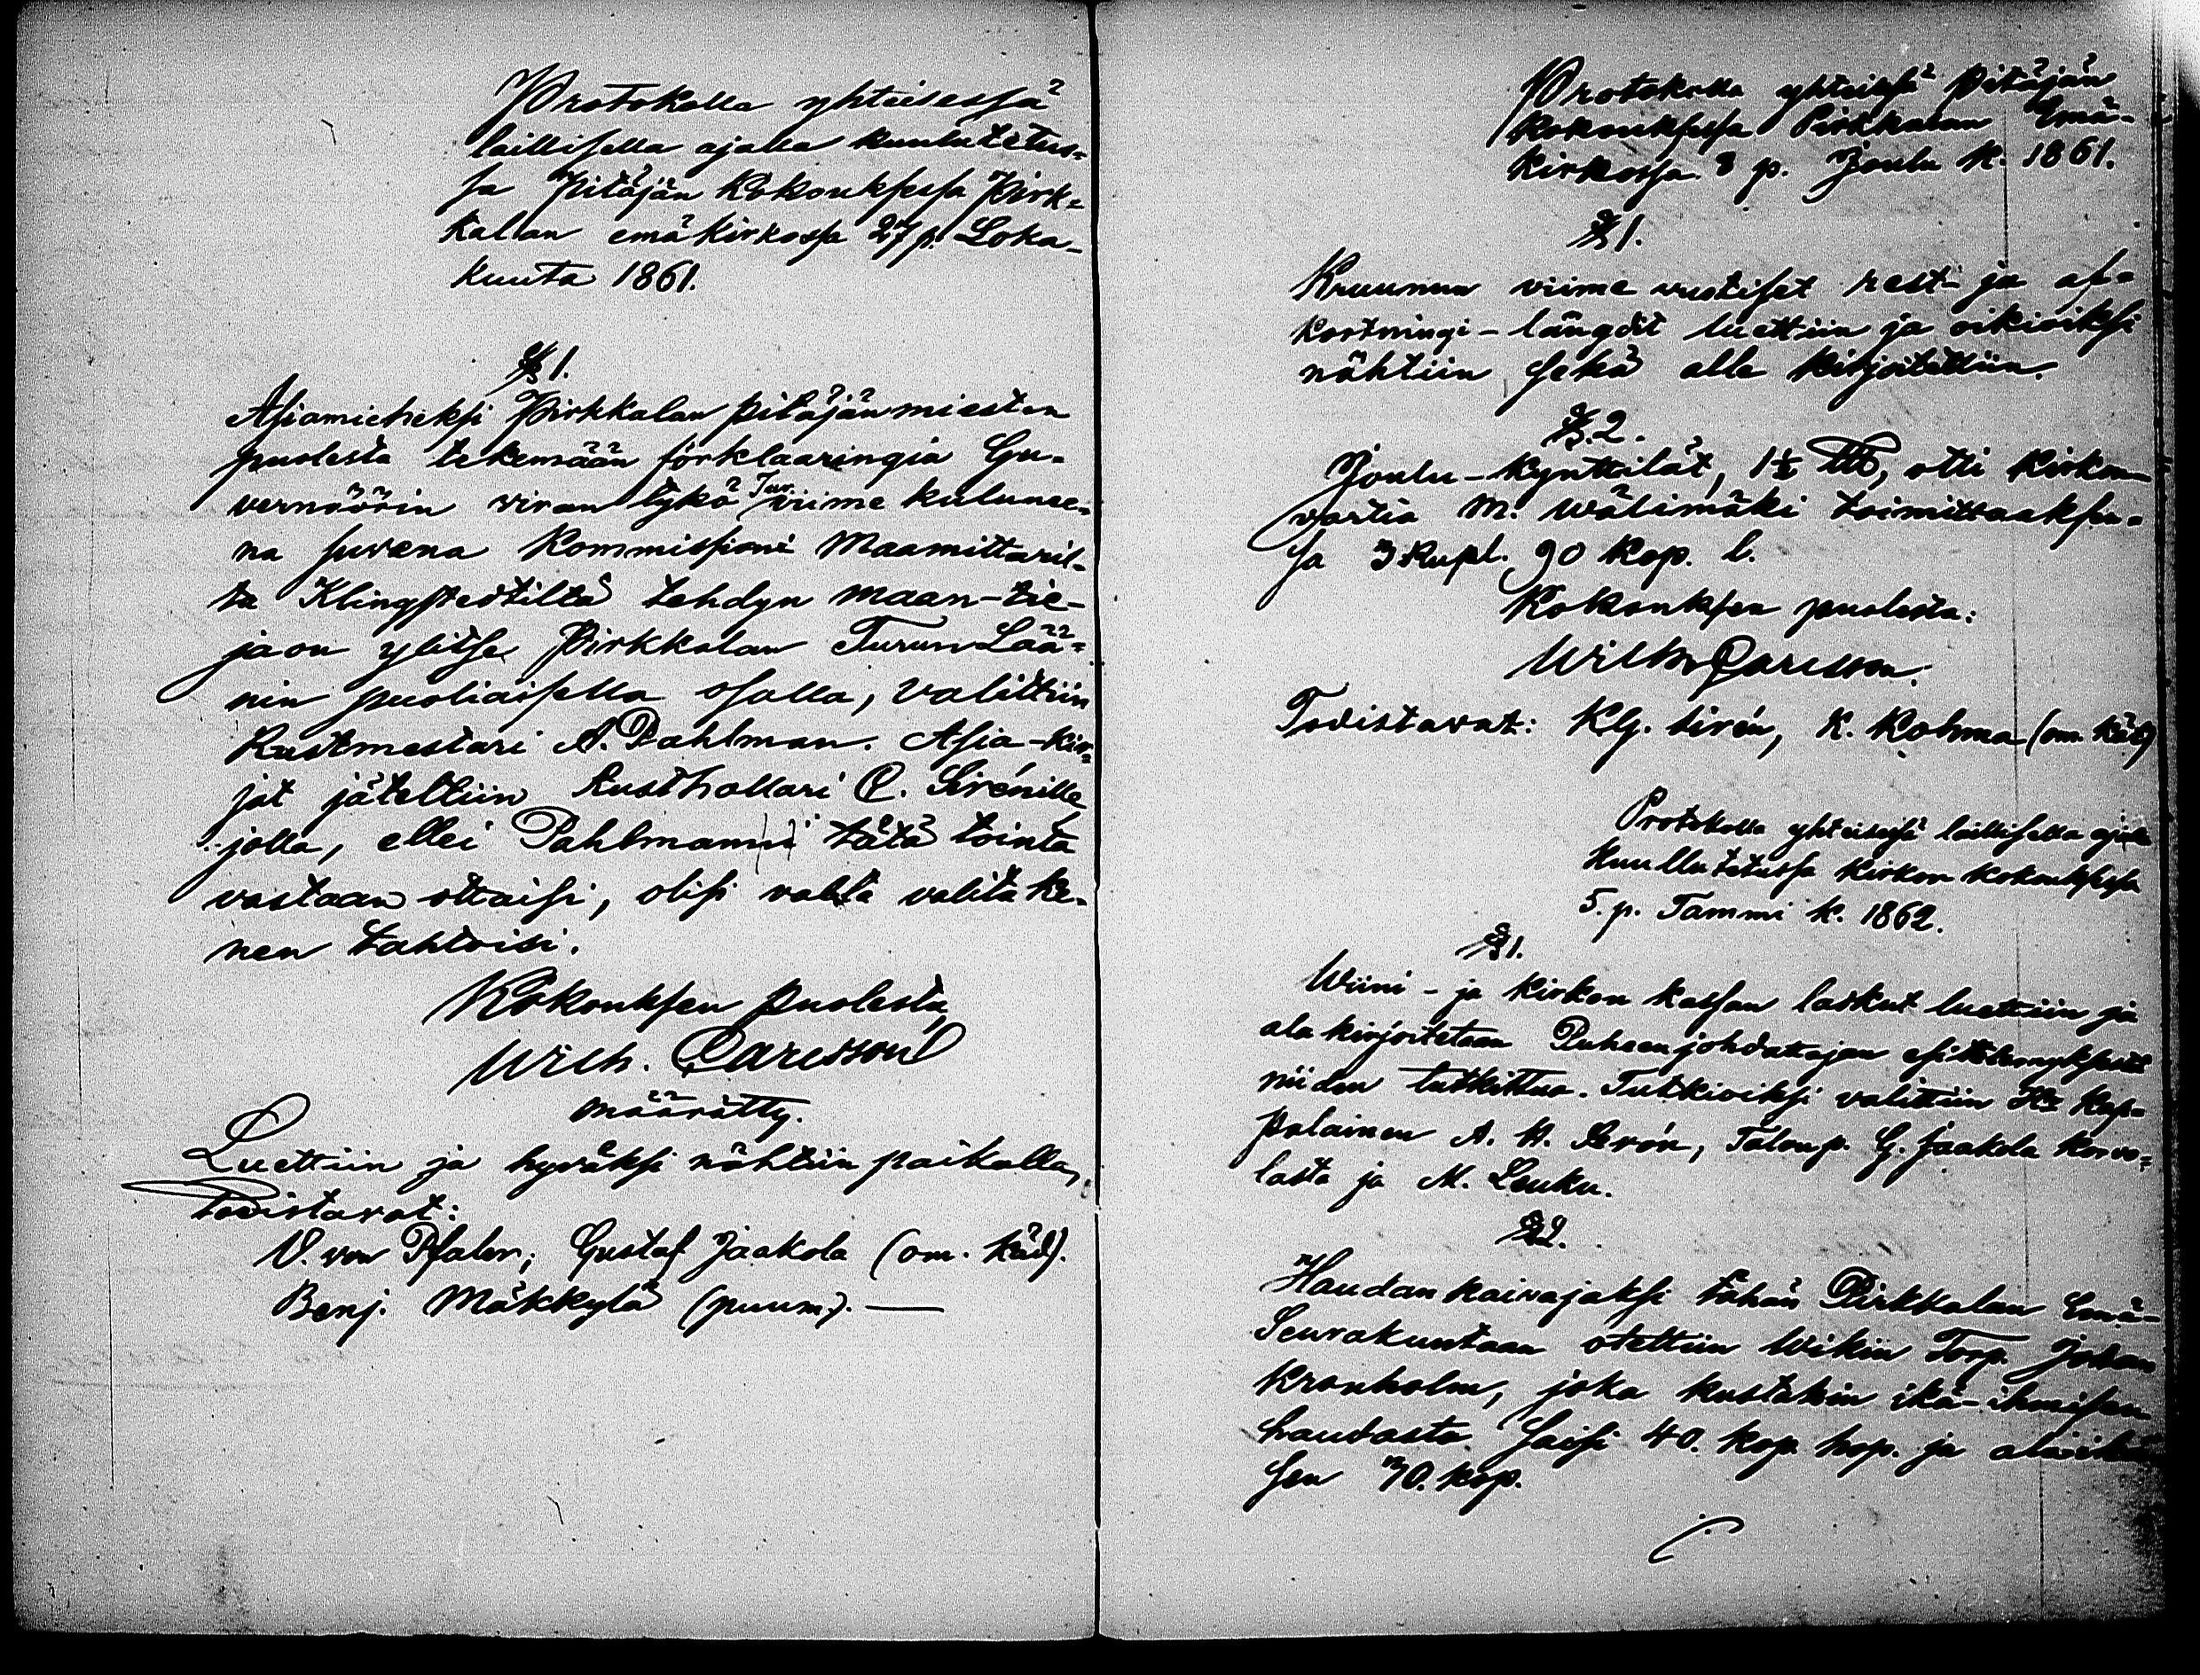 Protokolla yhteisessä
laillisella ajalla kuulutetus=
sa Pitäjän Kokouksessa Pirk=
kalan emäkirkossa 27 p. Loka-
kuuta 1861.
§ 1.
Asiamieheksi Pirkkalan pitäjän miesten
puolesta tekemään förklaaringia Gu=
vernöörin viran tykö Tur. viime kulunee=
na suvena Kommissioni Maamittaril=
ta Klingstedtiltä tehdyn maan-tie-
jaon ylitse Pirkkalan Turun Lää=
nin puoliaisella osalla, valittiin
Rustmestari A. Pahlman. Asia-kir=
jat jätettiin Rusthollari C. Sirénille
jolla, ellei Pahlmanni tätä tointa
vastaan ottaisi, olisi valta valita ke=
nen tahtoisi.
Kokouksen puolesta,
Wilh. Carlsson
määrätty.
Luettiin ja hyväksi nähtiin paikalla,
todistavat:
V. von Pfaler; Gustaf Jaakola (om. käd).
Benj. Mäkkylä (puum).
Protokolla yhteisessä Pitäjän
kokouksessa Pirkkalan Emä-
kirkossa 8 p. Joulu k. 1861.
§ 1.
Kruunun viime vuotiset rest- ja af=
kortningi-längdit luettiin ja oikioiksi
nähtiin sekä alle kirjoitettiin.
§. 2.
Joulu-kynttilät, 1½ ℔, otti Kirkon
vartia M. Wälimäki toimittaaksen=
sa 3 Rupl. 90 Kop. l.
Kokouksen puolesta:
Wilh. Carlsson.
Todistavat: Klg. Sirén, K. Kolmma (om. käd)
Protokolla yhteisessä laillisella ajalla
kuullutetussa Kirkon kokouksessa
5. p. Tammi k. 1862.
§ 1.
Wiini- ja kirkon kassan laskut luettiin ja
ala kirjoitetaan Puheenjohdattajan esittelemyksestä
niiden tutkittua. Tutkioiksi valittiin Hr Kap=
palainen A. H. , Talonp. G. Jaakola Korvo=
lasta ja M. Leuku.
§ 2.
Haudankaivajaksi tähän Pirkkalan Emä-
Seurakuntaan otettiin Wikiin Torp. Johan
Kronholm, joka kustakin ikä-ihmisen
haudasta saisi 40. kop. hop. ja
sen 30. kop.